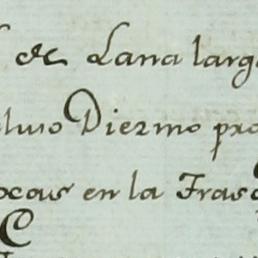 de Lana larga
Diezmo pro
ocas en la Fras
C